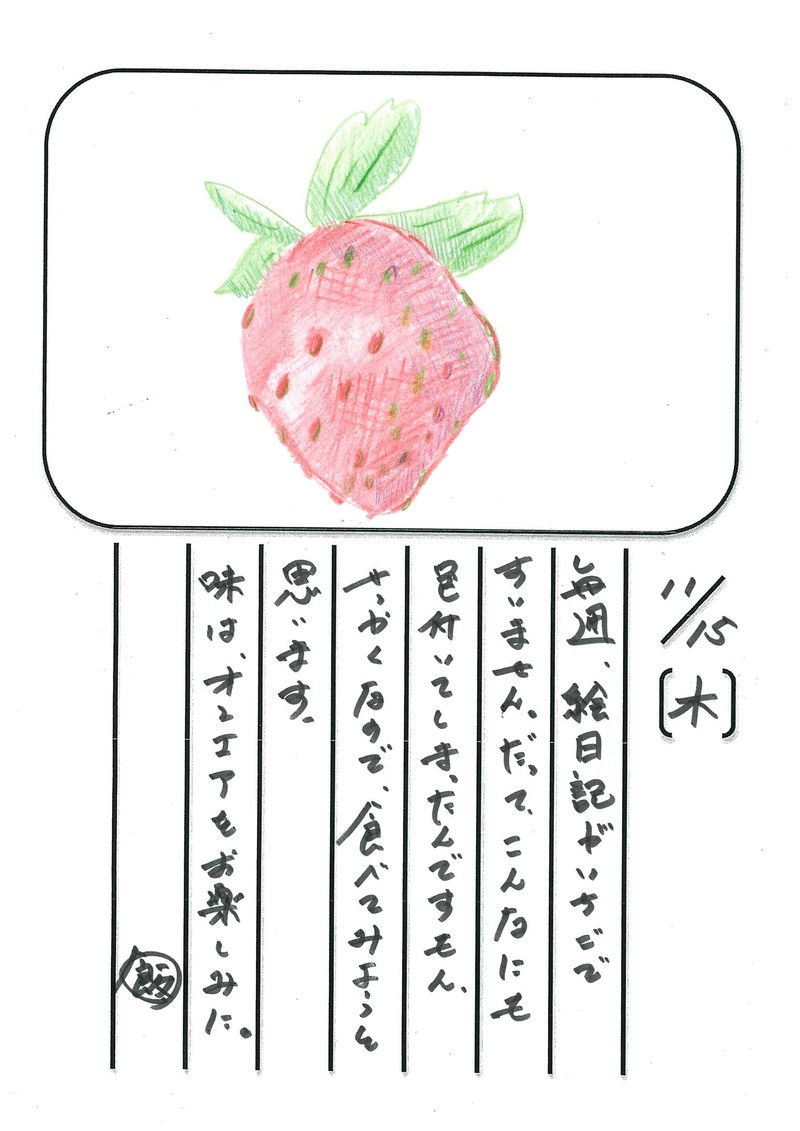 11/15
[木]
毎週、絵日記がいちごで
すいません。だって、こんなにも
色付いてしまったんですもん、
せっかくなので、食べてみようと
思います。
味は、オンエアをお楽しみに。
飯